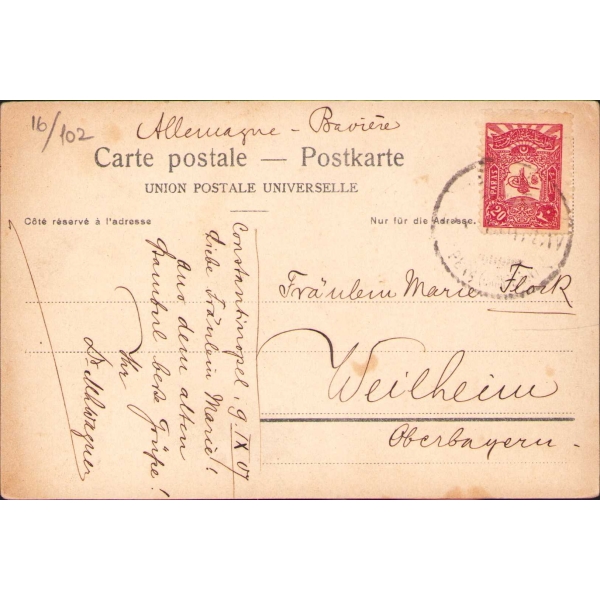 16/102
Allemagne - Bavière
Carte postale — Postkarte
UNION POSTALE UNIVERSELLE
Côté réservé à l'adresse
Nur für die Adresse.
PARAS
20
Fräulein Marie Flock
Weilheim
Oberbayern.
Constantinopel, 9 IX 07
Liebe Fräulein Marie!
Aus dem alten
Stambul beste Grüße!
Ihr